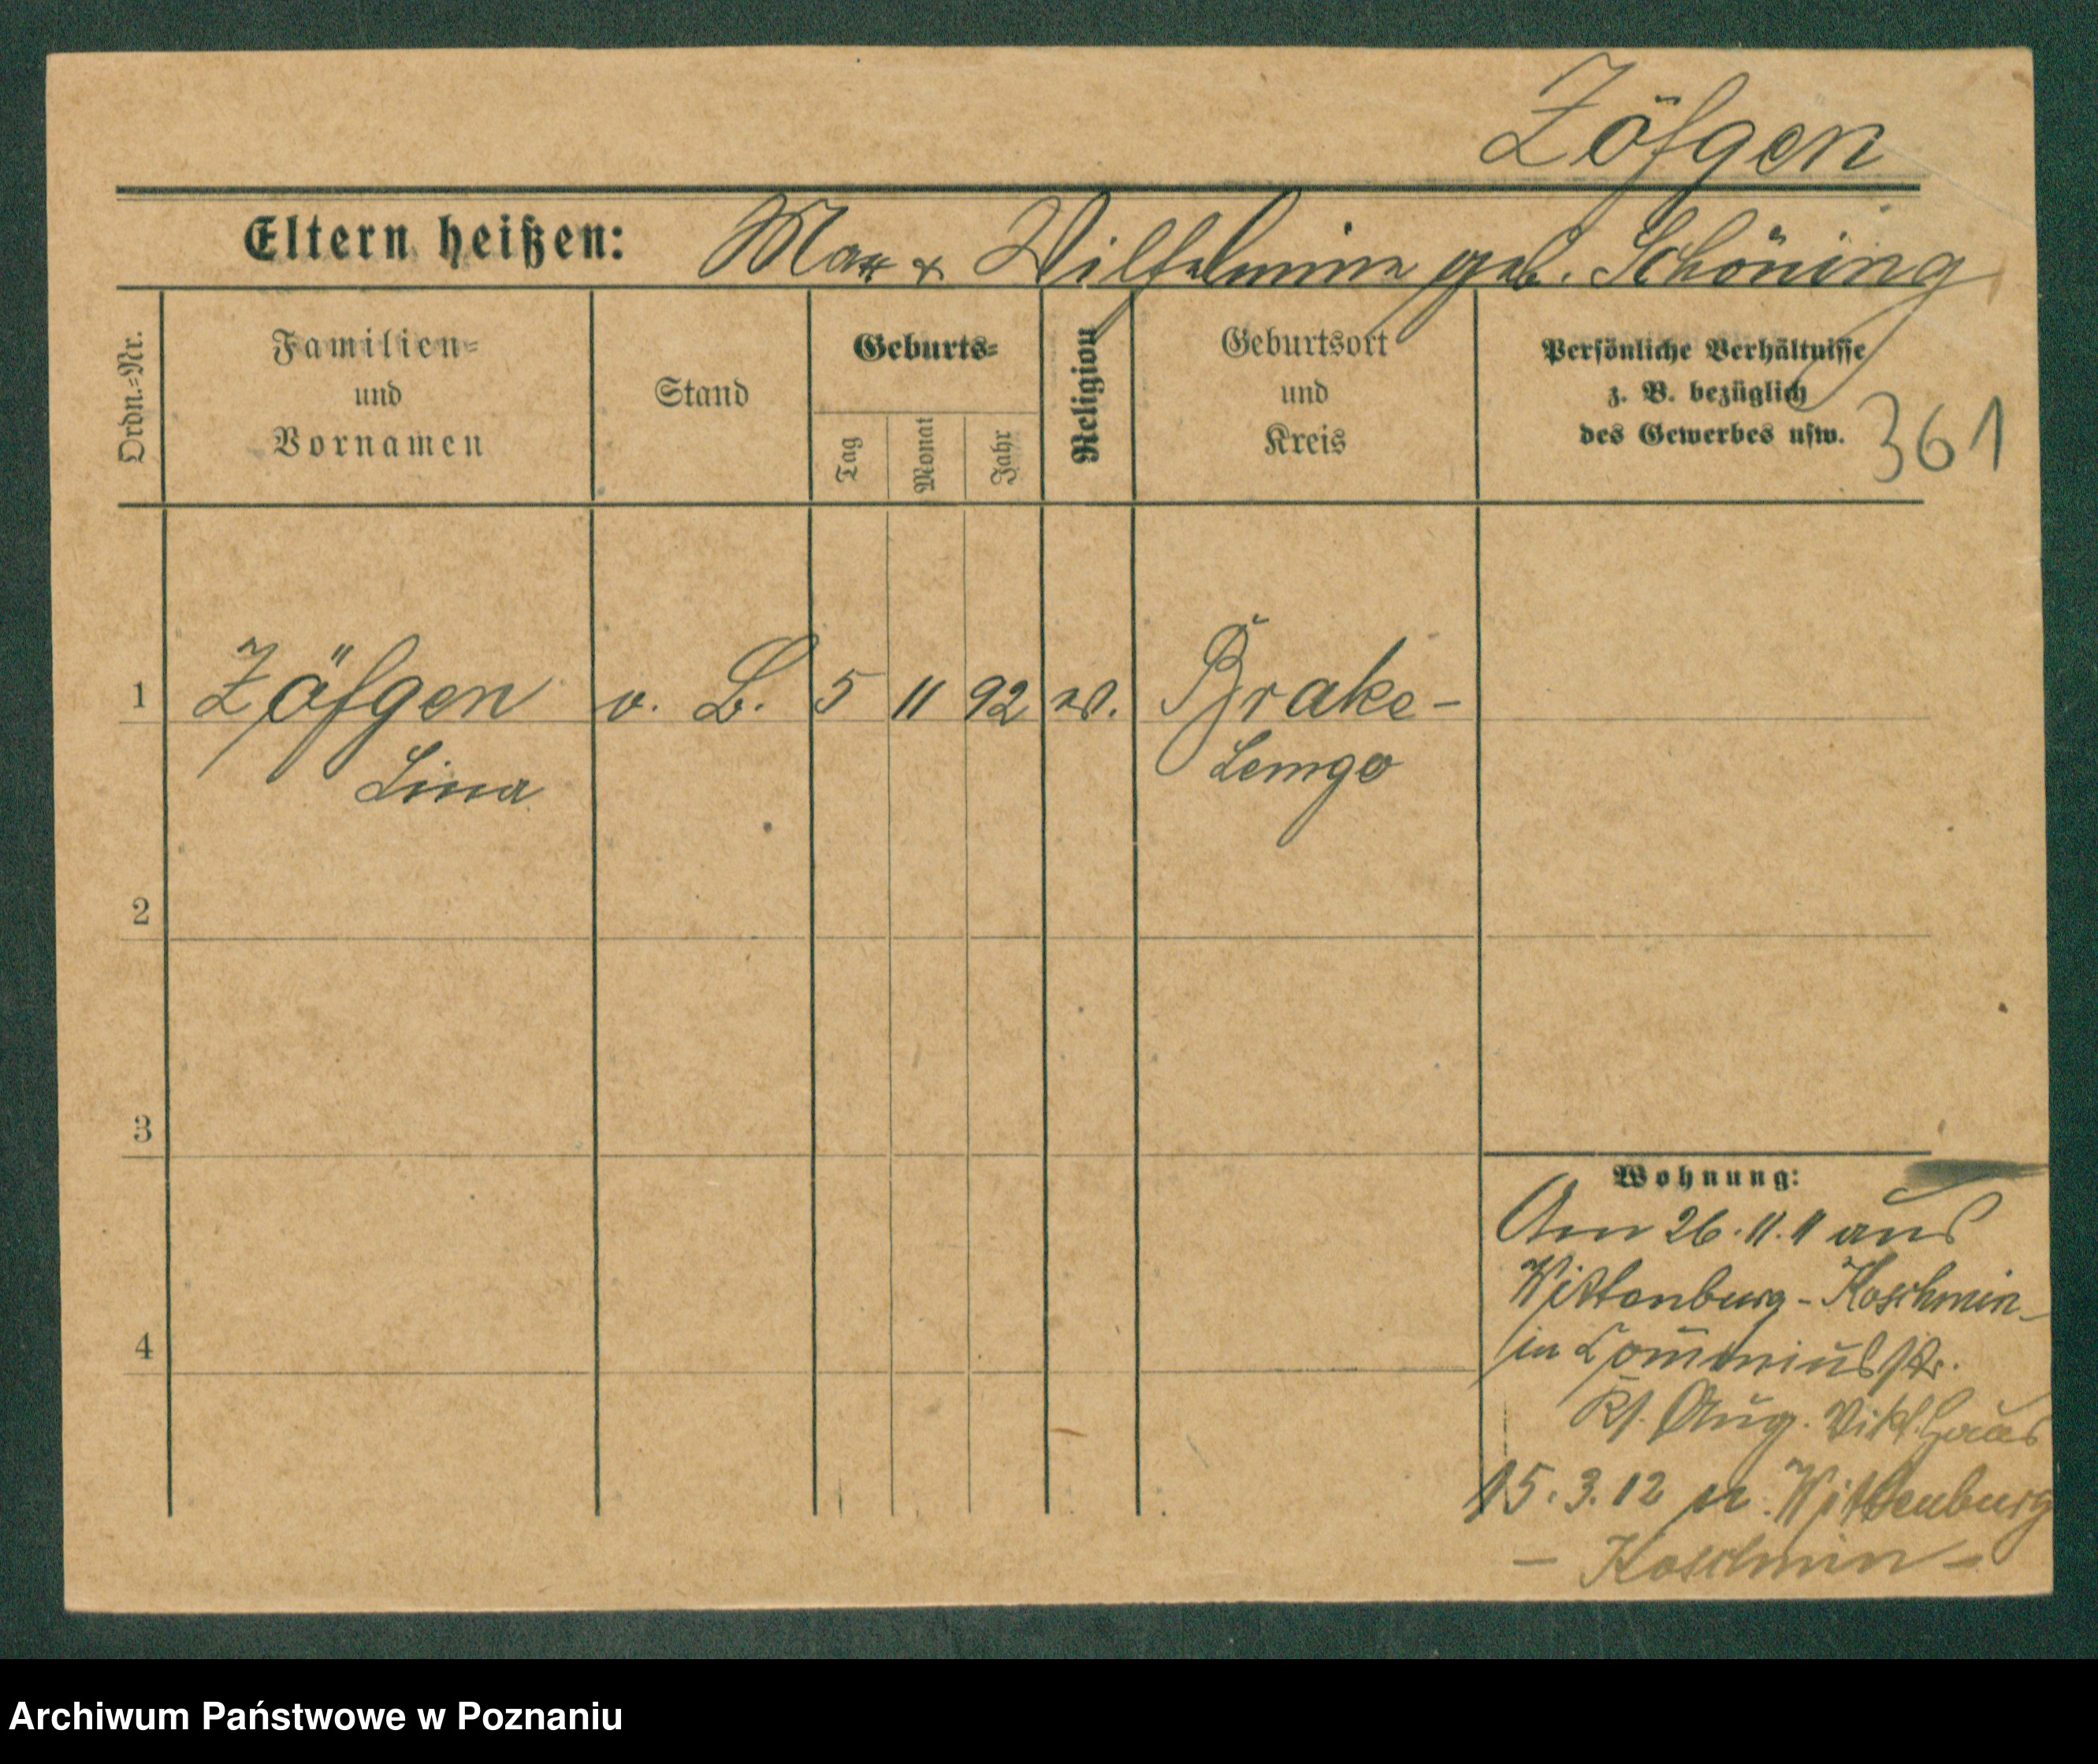 Zöfgen
Eltern heißen: Max & Wilhelmine geb. Schöning
Ordn.=Nr.
Familien=
und
Vornamen
Stand
Geburts=
Tag
Monat
Jahr
Religion
Geburtsort
und
Kreis
Persönliche Verhältnisse
z. B. bezüglich
des Gewerbes usw.
361
1 Zöfgen o. B. 5 11 92 w. Brake-
Lina Lemgo
2
3
4
Wohnung:
Am 26.11.11 aus
Wittenburg - Koschmin-
in Commeniusstr.
Aug. Vikt. Haus
15.3.12 n. Wittenburg
- Koschmin -
Archiwum Państwowe w Poznaniu